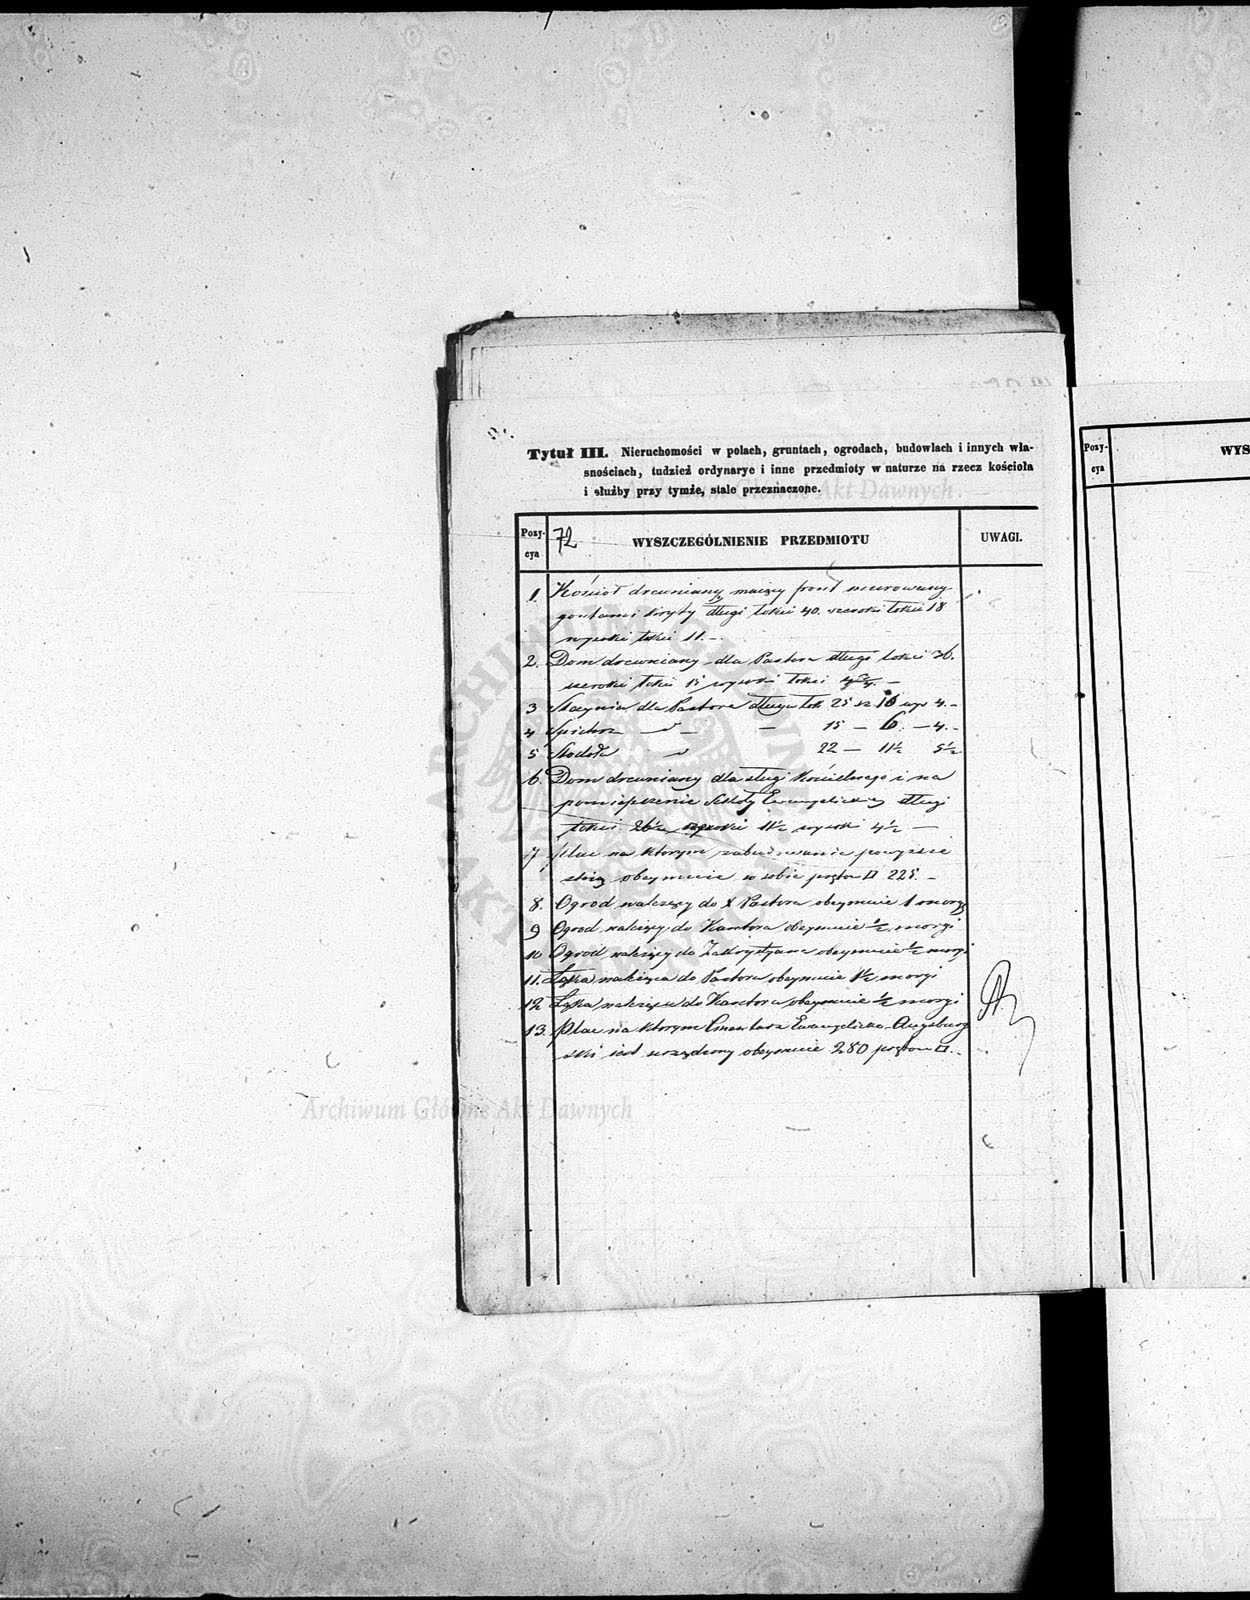 Tytuł III. Nieruchomości w polach, gruntach, ogrodach, budowlach i innych wła-
snościach, tudzież ordynarye i inne przedmioty w naturze na rzecz kościoła
i służby przy tymże, stale przeznaczone.
Archiwum Główne Akt Dawnych
Pozy-
cya
72
WYSZCZEGÓLNIENIE PRZEDMIOTU
UWAGI.
Pozy-
cya
WYS
1. Kościoł drewniany maiący front murowany
gontami kryty długi łokci 40. szeroki łokci 18
wysoki łokci 11.-
2. Dom drewniany dla Pastora długi łokci 36.
szeroki łokci 15 wysoki łokci
3 Staynia dla Pastora długa łok 25 sz 10 wys 4.-
4 Spichrz — 15 — 6. — 4.-
5 Stodoła 22 — 11½ 5½
6. Dom drewniany dla sługi Kościelnego i na
pomieszczenie Szkoły Ewangelickiey długi
łokci 26½ szeroki 11½ wysoki 4½ —
7 Plac na ktorym zabudowania powyższe
stoią obeymuie w sobie prętow □ 225. -
8. Ogrod należący do Pastora obeymuie 1 morg
9 Ogrod należący do Kantora obeymuie ½ morgi
10 Ogrod należący do Zakrystyana obeymuie ½ morgi
11. Łąka należąca do Pastora obeymuie 1½ morgi
12 Łąka należąca do Kantora obeymuie ½ morgi
13. Plac na ktorym Cmentarz Ewangelicko-Augsburg
ski iest urządzony obeymuie 280 prętow □.-
Archiwum Główne Akt Dawnych